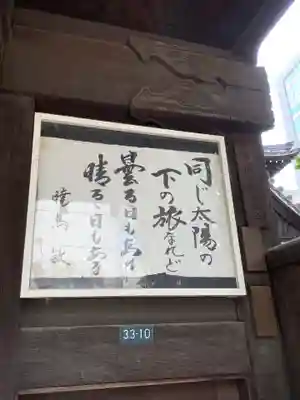 同じ太陽の
下の旅なれど
曇る日もあれば
晴る日もある
暁烏 敏
33-10